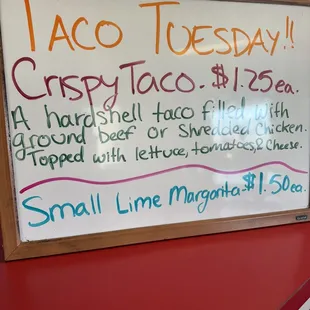 TACO TUESDAY!!
Crispy Taco. $1.25 ea.
A hardshell taco filled with
ground beef or Shredded Chicken.
Topped with lettuce, tomatoes, & Cheese.
Small Lime Margarita $1.50 ea.